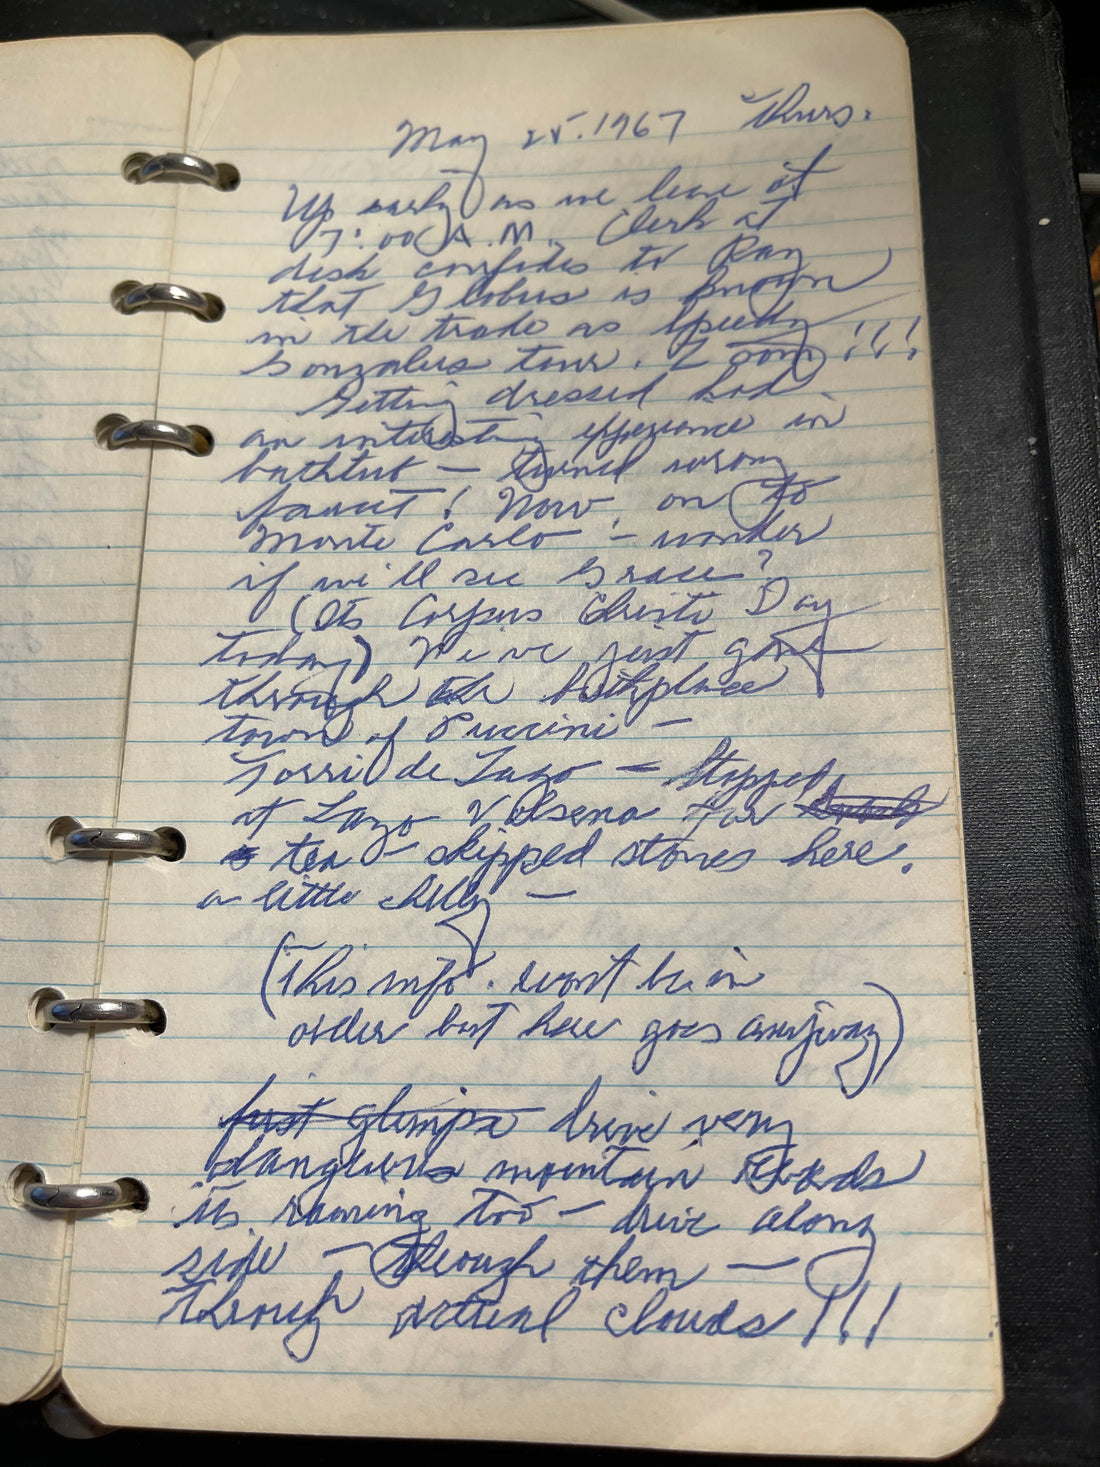 May 25. 1967 Thurs.
Up early as we leave at
7:00 A.M. Clerk at
desk confides to Ray
that Globus is known
in the trade as Speedy
Gonzales tour. Zoom!!!
Getting dressed had
an interesting experience in
bathtub — turned wrong
faucet! Now on to
Monte Carlo — wonder
if we'll see Grace?
(Its Corpus Christi Day
today) We've just gone
through the birthplace
town of Puccini —
Torri de Lago — Stopped
at Lago Volsena for
tea — skipped stones here.
a little chilly —
(This info. wont be in
order but here goes anyway)
first glimpse drive very
dangerous mountain roads
its raining too — drive along
side — through them —
through actual clouds!!!